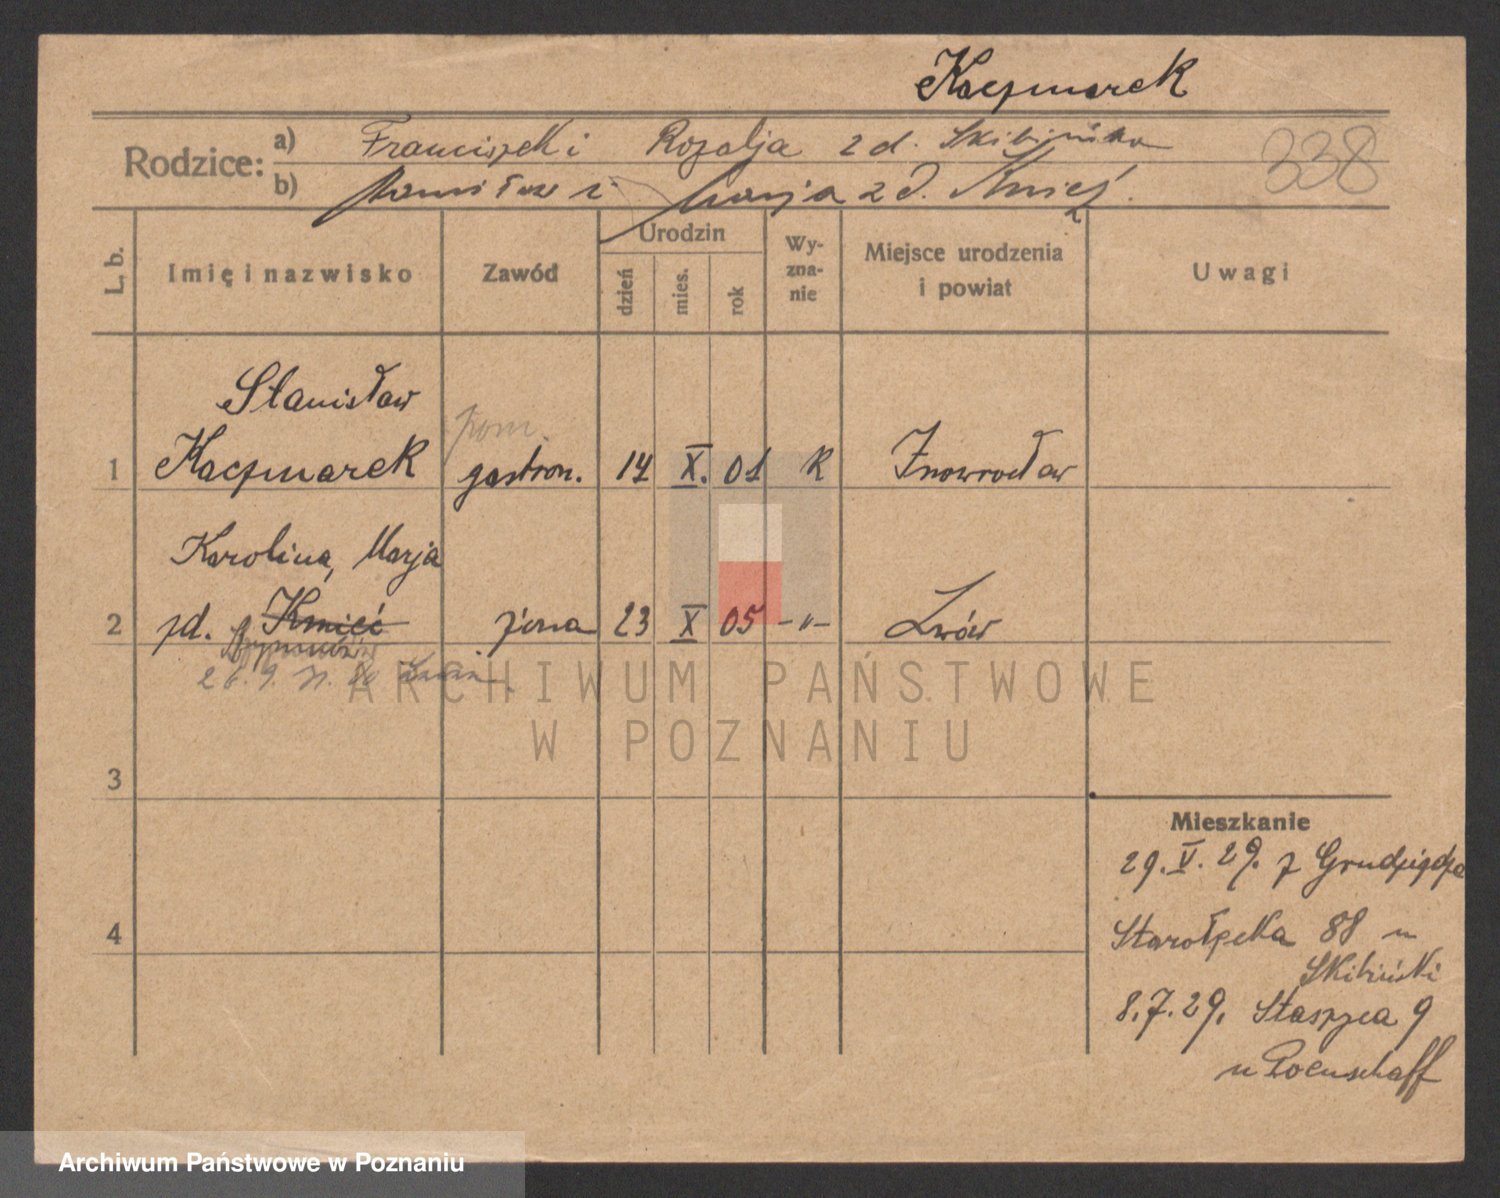 Kaczmarek
Rodzice:
a) Franciszek i Rozalja z d. Skibińska
b) i Marja z d. Kmieć.
338
L. b.
Imię i nazwisko
Zawód
Urodzin
dzień
mies.
rok
Wy-
zna-
nie
Miejsce urodzenia
i powiat
Uwagi
Stanisław
pom.
1 Kaczmarek gastron. 14 X. 01 R Inowrocław
Karolina, Marja
2 zd. Kmieć żona 23 X 05 -"- Lwów
3
4
Mieszkanie
29. V. 29. z Grudziądza
Starołęcka 88 u
Skibiński
8.7.29. Staszyca 9
u
ARCHIWUM PAŃSTWOWE
W POZNANIU
Archiwum Państwowe w Poznaniu